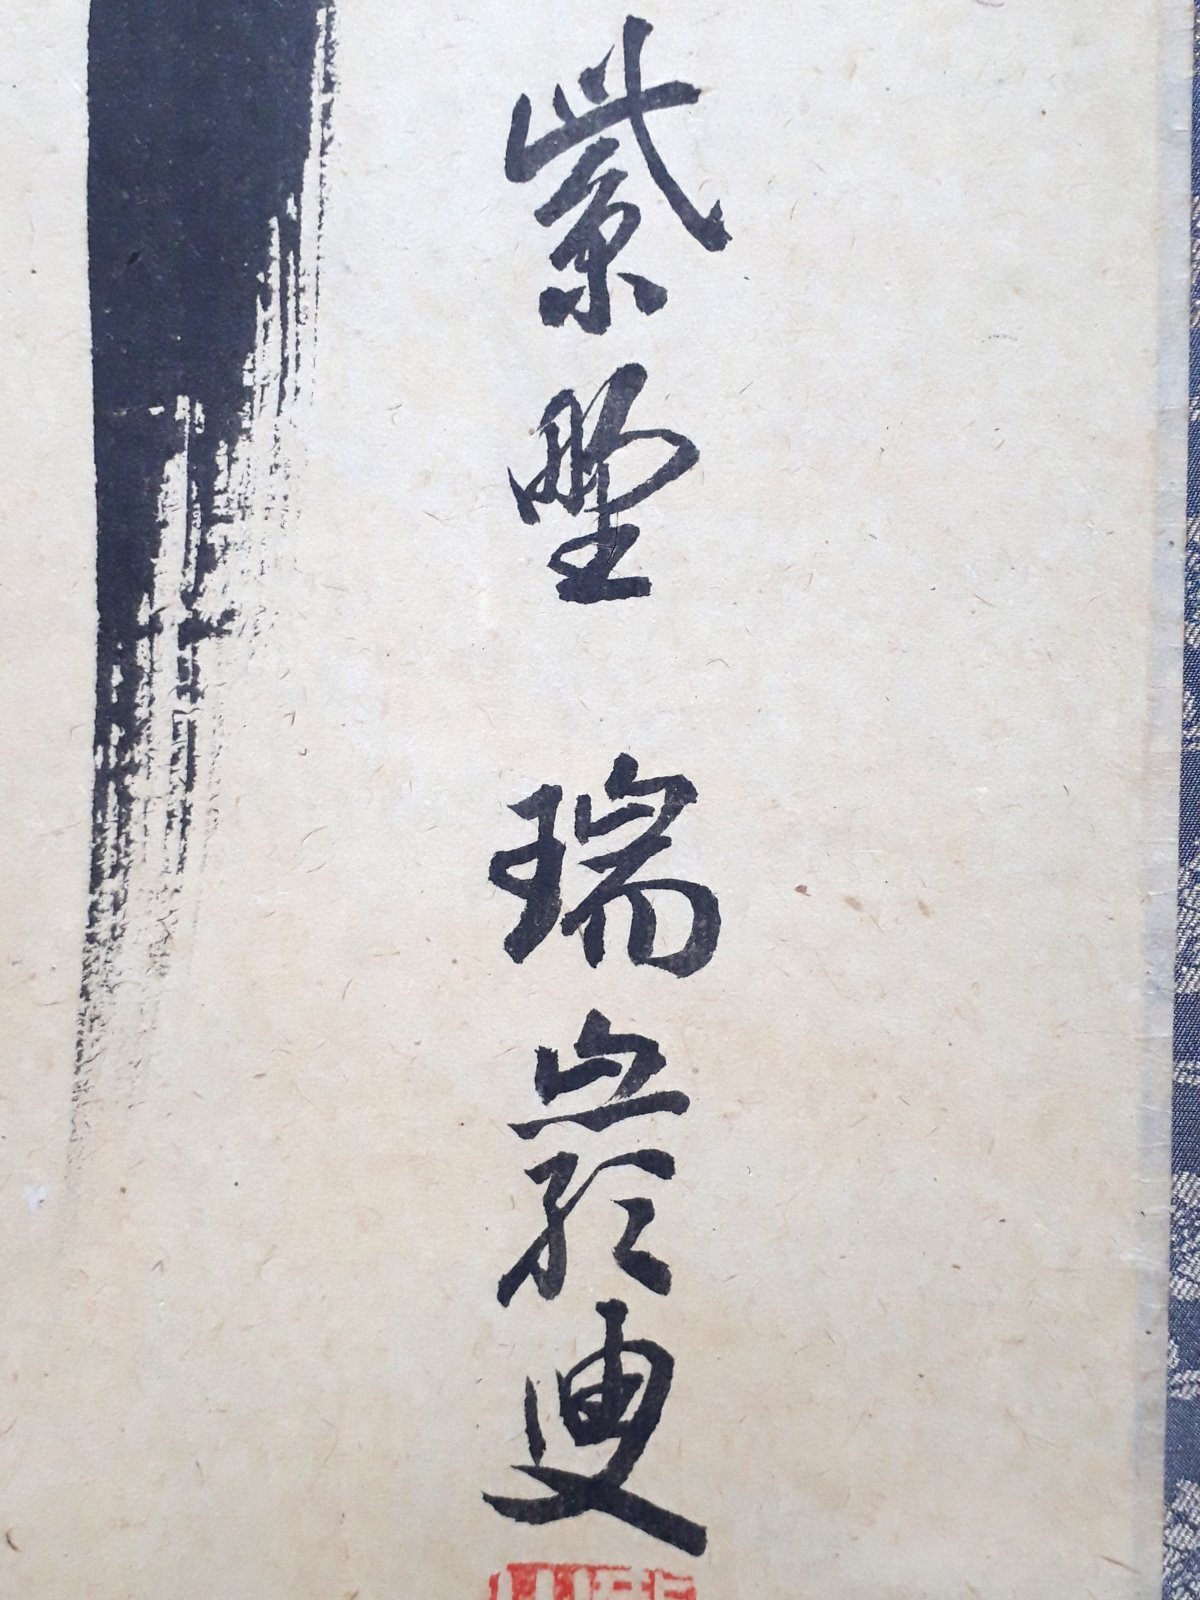 紫野 瑞巖叟